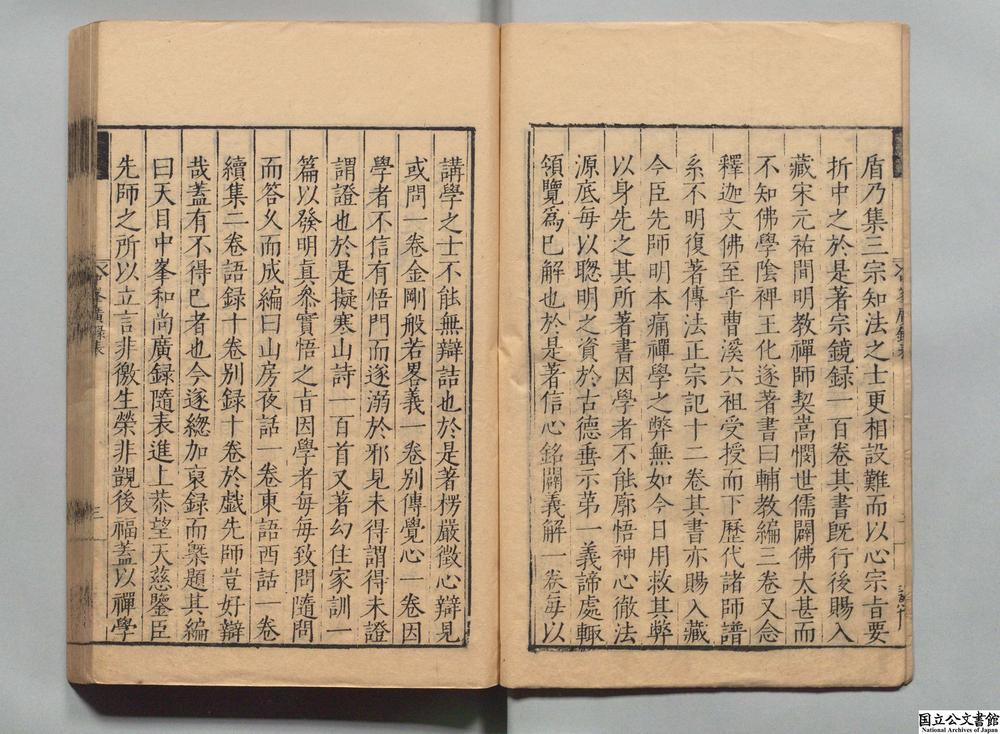 盾乃集三宗知法之士更相設難而以心宗旨要
折中之於是著宗鏡録一百卷其書既行後賜入
藏宋元祐間明教禪師契嵩憫世儒闢佛太甚而
不知佛學陰裨王化遂著書曰輔教編三卷又念
釋迦文佛至乎曹溪六祖受授而下歷代諸師譜
系不明復著傳法正宗記十二卷其書亦賜入藏
今臣先師明本痛禪學之弊無如今日用救其弊
以身先之其所著書因學者不能廓悟神心徹法
源底每以聰明之資於古德垂示第一義諦處輙
領覽為已解也於是著信心銘闢義解一卷每以
講學之士不能無辯詰也於是著楞嚴徵心辯見
或問一卷金剛般若畧義一卷別傳覺心一卷因
學者不信有悟門而遂溺於邪見未得謂得未證
謂證也於是擬寒山詩一百首又著幻住家訓一
篇以發明真叅實悟之旨因學者每每致問隨問
而答久而成編曰山房夜話一卷東語西話一卷
續集二卷語録十卷别録十卷於戲先師豈好辯
哉蓋有不得已者也今遂緫加裒録而槩題其編
曰天目中峯和尚廣録隨表進上恭望天慈鑒臣
先師之所以立言非徼生榮非覬後福蓋以禪學
廣録表
三
国立公文書館
National Archives of Japan